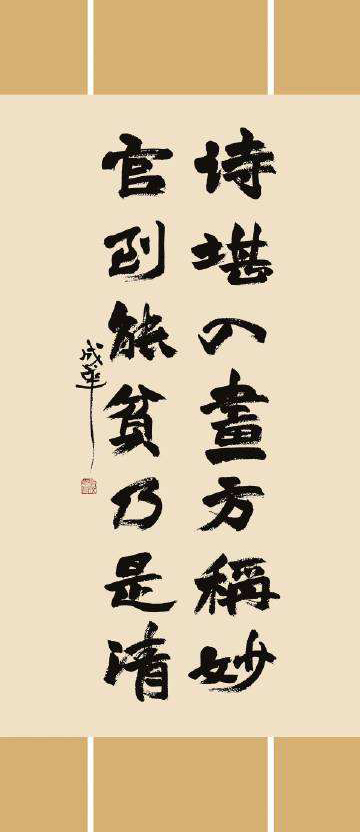 诗堪入畫方稱妙
官到能貧乃是清
成華